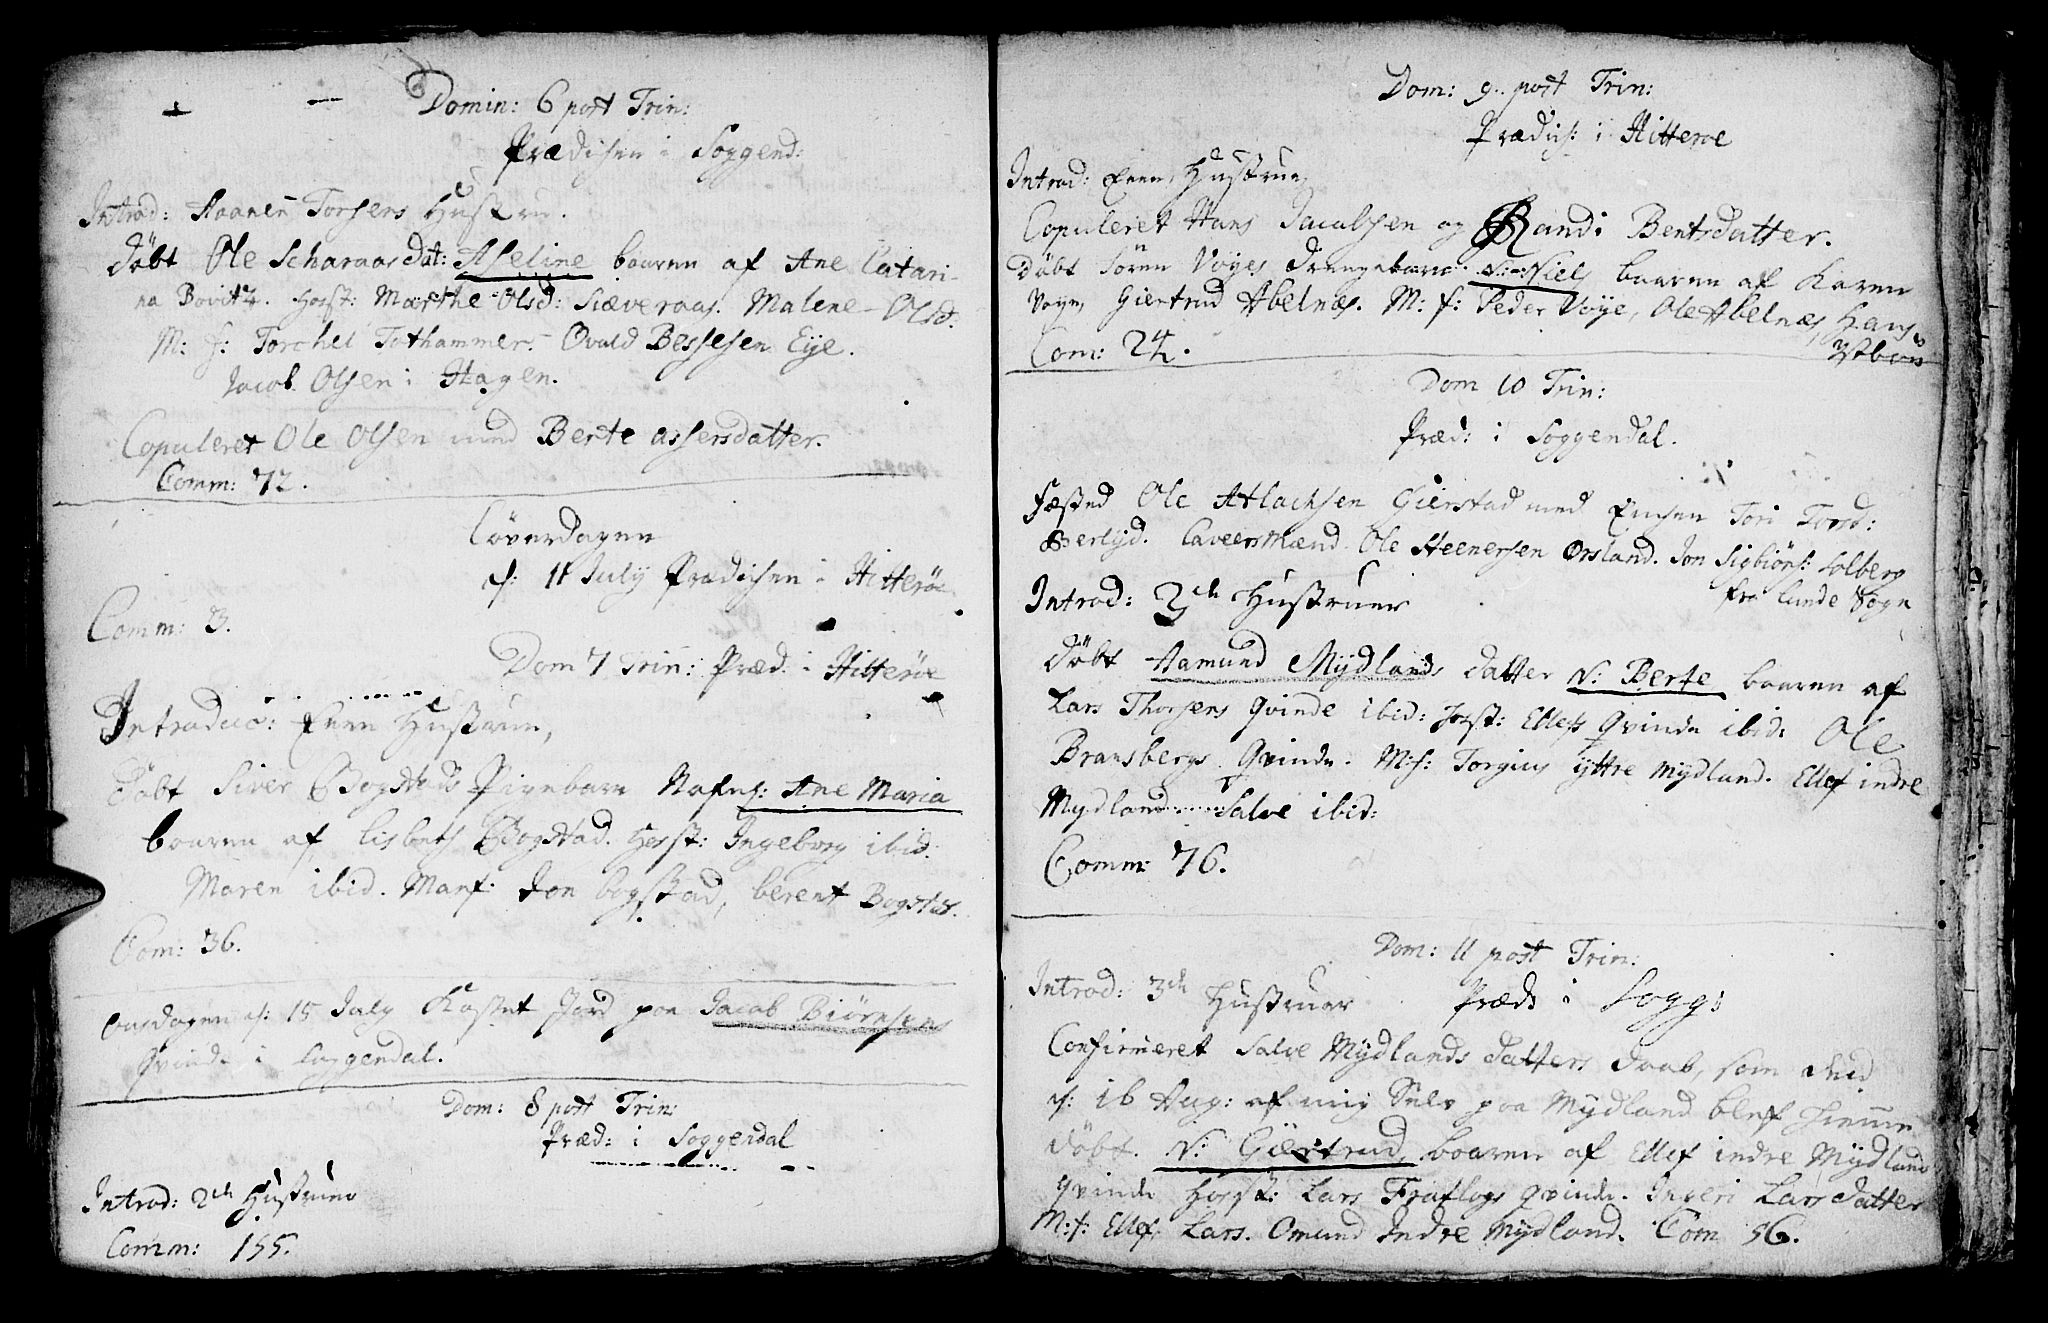 Domin: 6 post Trin:
Prædichen i Soggend:
Introd: Aanen Torsens Hustru.
Døbt Ole Scharaas Dat: Aseline baaren af Ane Catari-
na Bovitz. Hosst: Marthe Olsd: Siæveraas. Malene Olsd.
M: f: Torchel Tothammer. Ovald Bessesen Eije.
Jacob Olsen i Hagen.
Copuleret Ole Olsen med Berte Assersdatter.
Comm: 72.
Löverdagen
d: 11 July Prædichen i Hitterøe
Comm: 3.
Dom 7 Trin: Præd: i Hitterøe
Introduc: Een Hustrue,
Døbt Siver Bogstads Pigebarn Nafnl: Ane Maria
baaren af Lisbeth Bogstad. Hosst: Ingeborg ibid.
Maren ibid. Manf. Jon bogstad, berent Bogstad.
Com: 36.
Onsdagen d: 15 July Kastet Jord paa Jacob Biörnsens
Qvinde i Soggendal.
Dom: 8 post Trin:
Præd: i Soggendal
Introd: 2de Hustruer
Comm: 155.
Dom: 9. post Trin:
Prædich: i Hitterøe
Introd: Een Hustrue,
Copuleret Hans Jacobsen og Randi Bentsdatter.
Døbt Sören Vøyes Drengebarn N: Niels baaren af Karen
Vøye, Giertrud Abelnæs. M: f: Peder Vøye, Ole Abelnæs, Hans
Com: 24.
Dom 10 Trin:
Præd: i Soggendal.
Fæsted Ole Atlachsen Gierstad med Enchen Tori Tord:
Berlyd. Caveersmænd Ole Steenersen Ørsland. Jon Sigbiöns: Solberg
fra Lunde Sogn
Introd: 3de Hustruer
Døbt Aamund Mydlands datter N: Berte baaren af
Lars Thorsens Qvinde ibid: Hosst: Ellefs Qvinde ibid: Ole
Bransbergs Qvinde. M:f: Torgius yttre Mydland. Ellef indre
Mydland. Salve ibid:
Comm: 76.
Dom: 11 post Trin:
Introd: 3de Hustruer Præd: i Sogg:
Confirmeret Salve Mydlands datters Daab, som med
d: 16 Aug: af mig Selv paa Mydland blef hiemme
døbt. N: Giertrud, baaren af Ellef indre Mydlands
Qvinde Hosst: Lars Frøflogs Qvinde. Ingeri Larsdatter
M:f: Ellef. Lars. Omund Indre Mydland. Com 56.